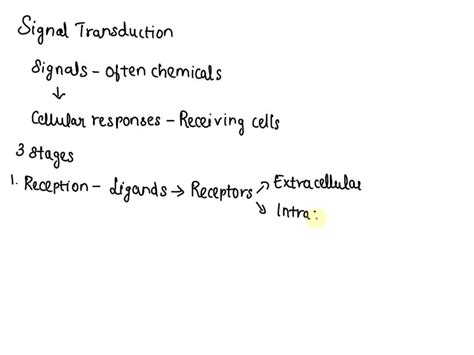 Signal Transduction
Signals - Often chemicals
↓
Cellular responses - Receiving cells
3 stages
1. Reception - Ligands → Receptors ↗ Extracellular
↘ Intra: